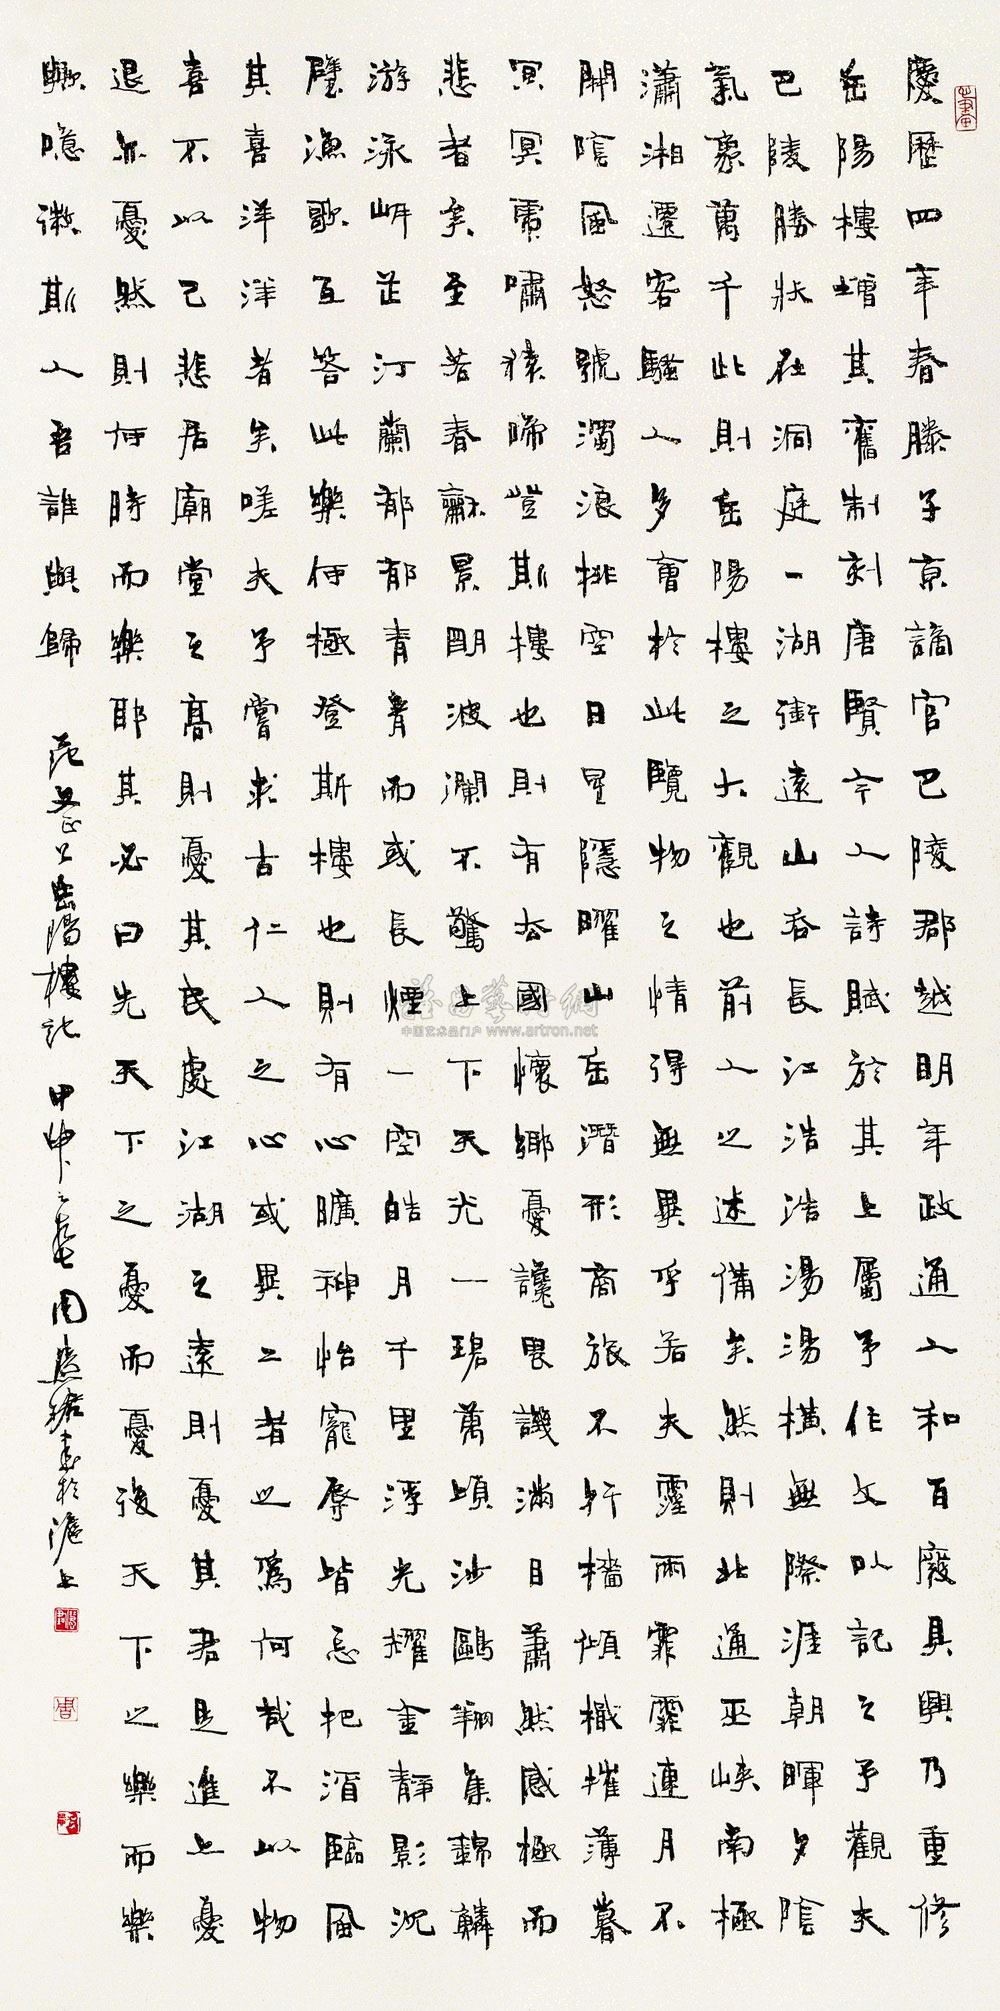 慶歷四年春滕子京謫官巴陵郡越明年政通人和百廢具興乃重修
岳陽樓增其舊制刻唐賢今人詩賦於其上屬予作文以記之予觀夫
巴陵勝狀在洞庭一湖銜遠山吞長江浩浩湯湯橫無際涯朝暉夕陰
氣象萬千此則岳陽樓之大觀也前人之述備矣然則北通巫峽南極
瀟湘遷客騷人多會於此覽物之情得無異乎若夫霪雨霏霏連月不
開陰風怒號濁浪排空日星隱曜山岳潛形商旅不行檣傾檝摧薄暮
冥冥虎嘯猿啼豈斯樓也則有去國懷鄉憂讒畏譏滿目蕭然感極而
悲者矣至若春龢景明波瀾不驚上下天光一碧萬頃沙鷗翔集錦鱗
游泳岸芷汀蘭郁郁青青而或長煙一空皓月千里浮光耀金靜影沉
璧漁歌互答此樂何極登斯樓也則有心曠神怡寵辱皆忘把酒臨風
其喜洋洋者矣嗟夫予嘗求古仁人之心或異二者之爲何哉不以物
喜不以己悲居廟堂之高則憂其民處江湖之遠則憂其君是進上憂
退亦憂然則何時而樂耶其必曰先天下之憂而憂後天下之樂而樂
歟噫微斯人吾誰與歸
范文正公岳陽樓記 甲申之春 周慧珺書於滬上
中国艺术品门户 www.artron.net